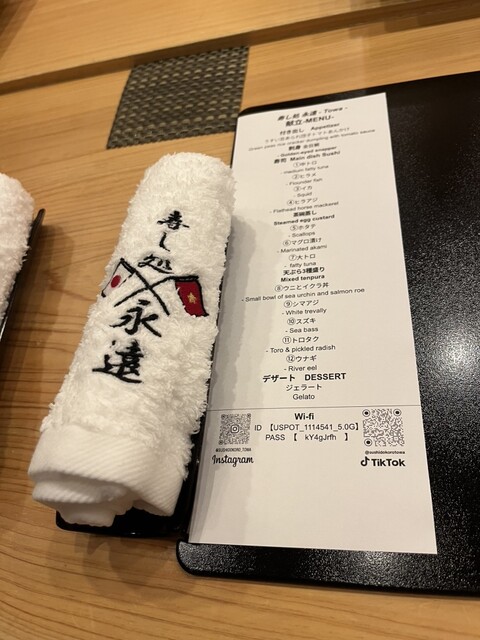 寿し処
永遠
寿し処 永遠 - Towa -
献立-MENU-
付き出し Appetizer
Green peas rice cracker dumpling with tomato sauce
Golden-eyed snapper
寿司 Main dish Sushi
①中トロ
- medium fatty tuna
②ヒラメ
- Flounder fish
③イカ
- Squid
④ヒラアジ
- Flathead horse mackerel
茶碗蒸し
Steamed egg custard
⑤ホタテ
- Scallops
⑥マグロ漬け
- Marinated akami
⑦大トロ
- fatty tuna
天ぷら3種盛り
Mixed tenpura
⑧ウニとイクラ丼
- Small bowl of sea urchin and salmon roe
⑨シマアジ
- White trevally
⑩スズキ
- Sea bass
⑪トロタク
- Toro & pickled radish
⑫ウナギ
- River eel
デザート DESSERT
ジェラート
Gelato
Wi-fi
ID 【USPOT_1114541_5.0G】
PASS 【 kY4gJrfh 】
@SUSHIDOKORO_TOWA
Instagram
@sushidokorotowa
TikTok